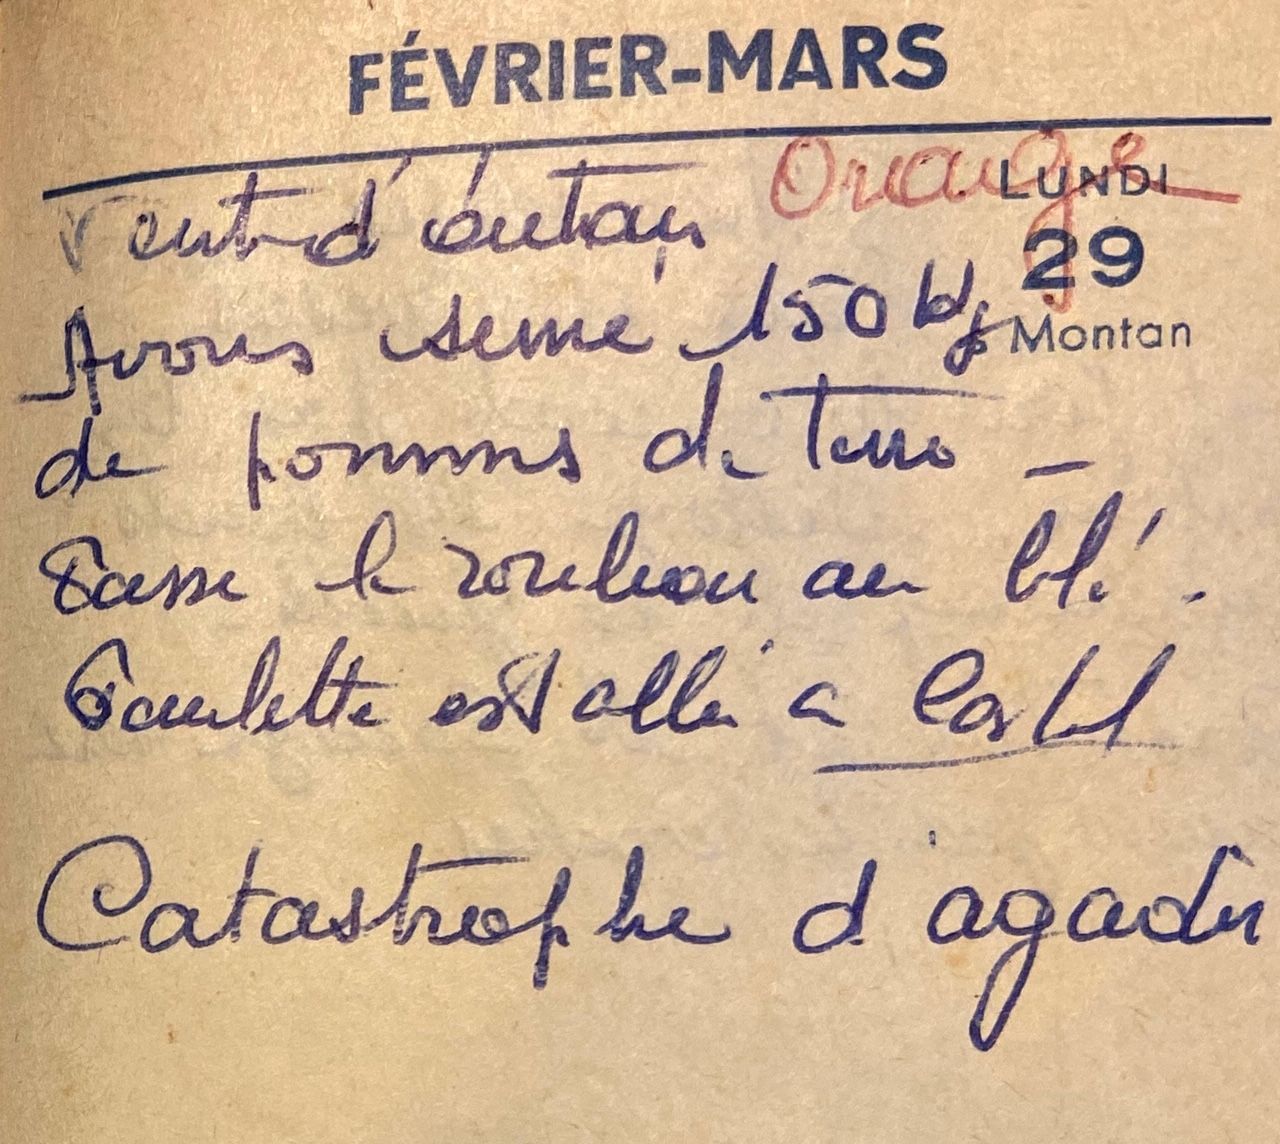 FÉVRIER-MARS
Vent d'autan Orange LUNDI
29
Avons semé 150 kg Montan
de pommes de terre -
Passé le rouleau au blé.
Paulette est allé à Castel
Catastrophe d'agadir